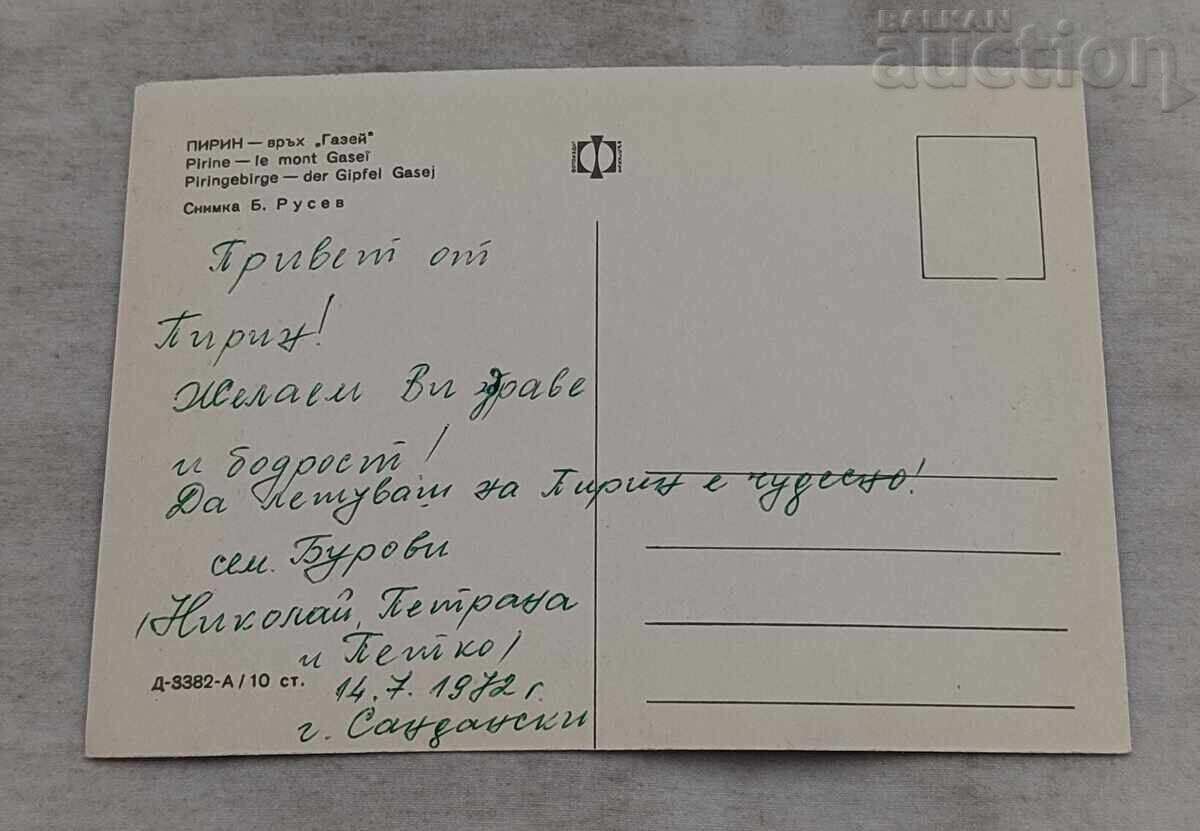 BALKAN
auction
ПИРИН — връх „Газей"
Pirine — le mont Gaseï
Piringebirge — der Gipfel Gasej
Снимка Б. Русев
Привет от
Пирин!
Желаем Ви здраве
и бодрост!
Да летуваш на Пирин е чудесно!
сем. Бурови
/Николай, Петрана
и Петко/
Д-3382-А/10 ст.
14.7.1972 г.
г. Сандански